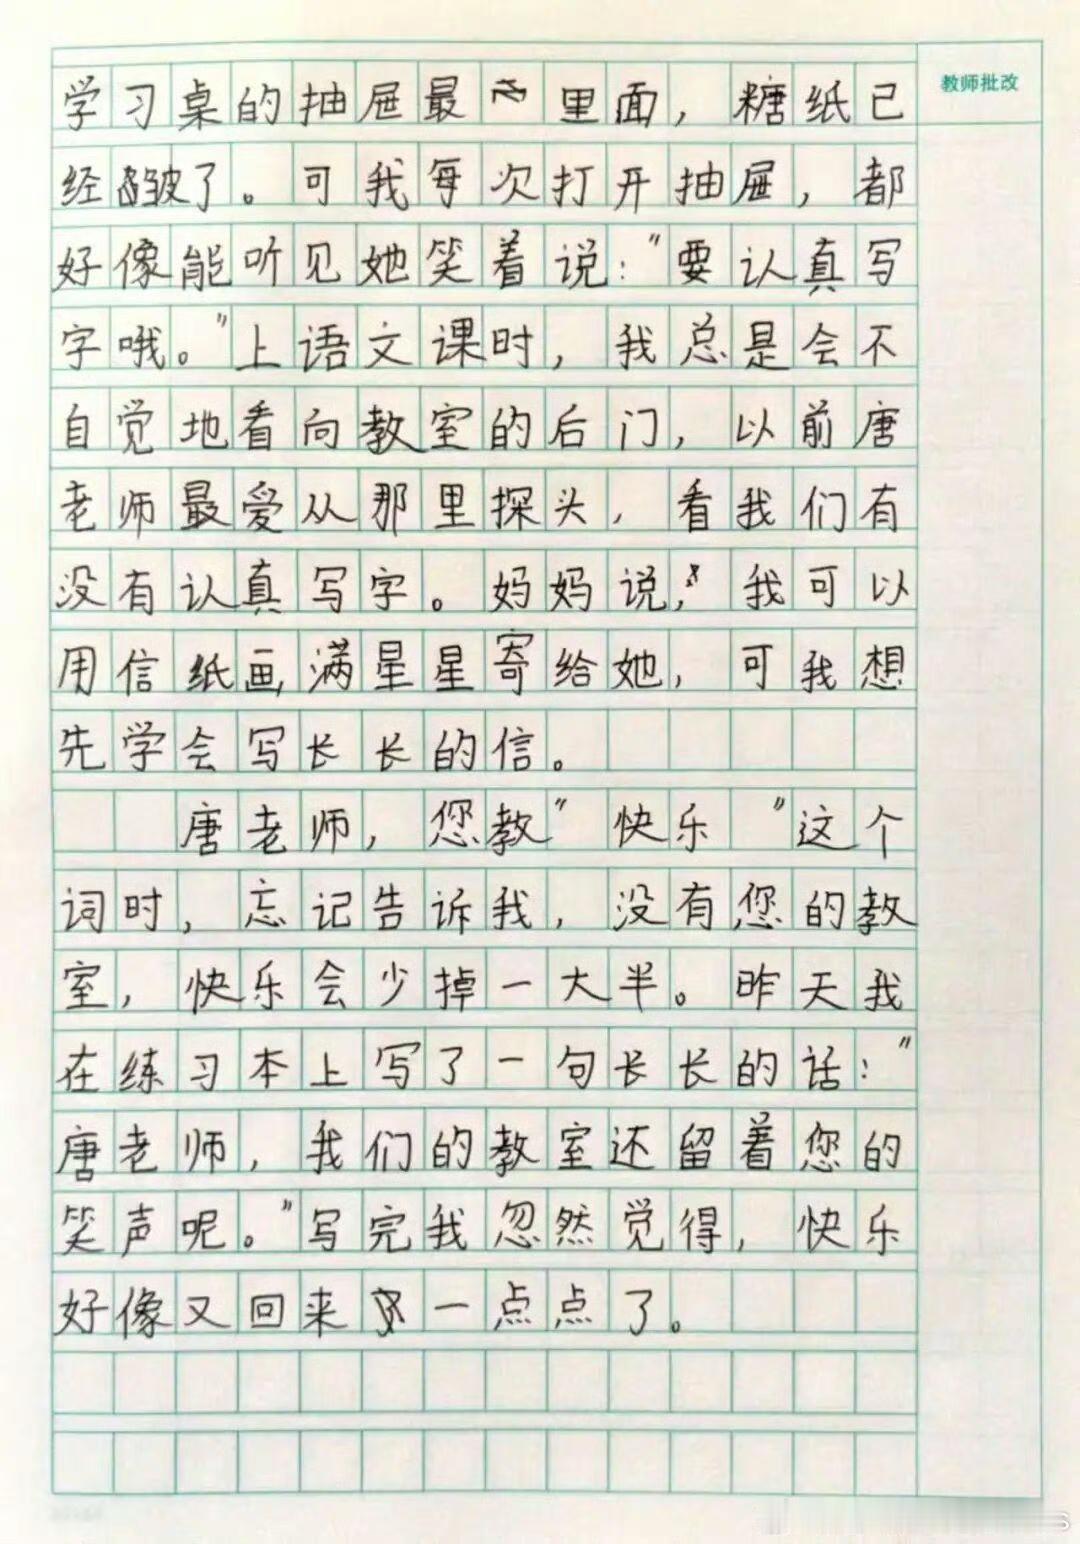 教师批改
学习桌的抽屉最里面，糖纸已
经皱了。可我每次打开抽屉，都
好像能听见她笑着说："要认真写
字哦。"上语文课时，我总是会不
自觉地看向教室的后门，以前唐
老师最爱从那里探头，看我们有
没有认真写字。妈妈说，我可以
用信纸画满星星寄给她，可我想
先学会写长长的信。
唐老师，您教"快乐"这个
词时，忘记告诉我，没有您的教
室，快乐会少掉一大半。昨天我
在练习本上写了一句长长的话："
唐老师，我们的教室还留着您的
笑声呢。"写完我忽然觉得，快乐
好像又回来一点点了。